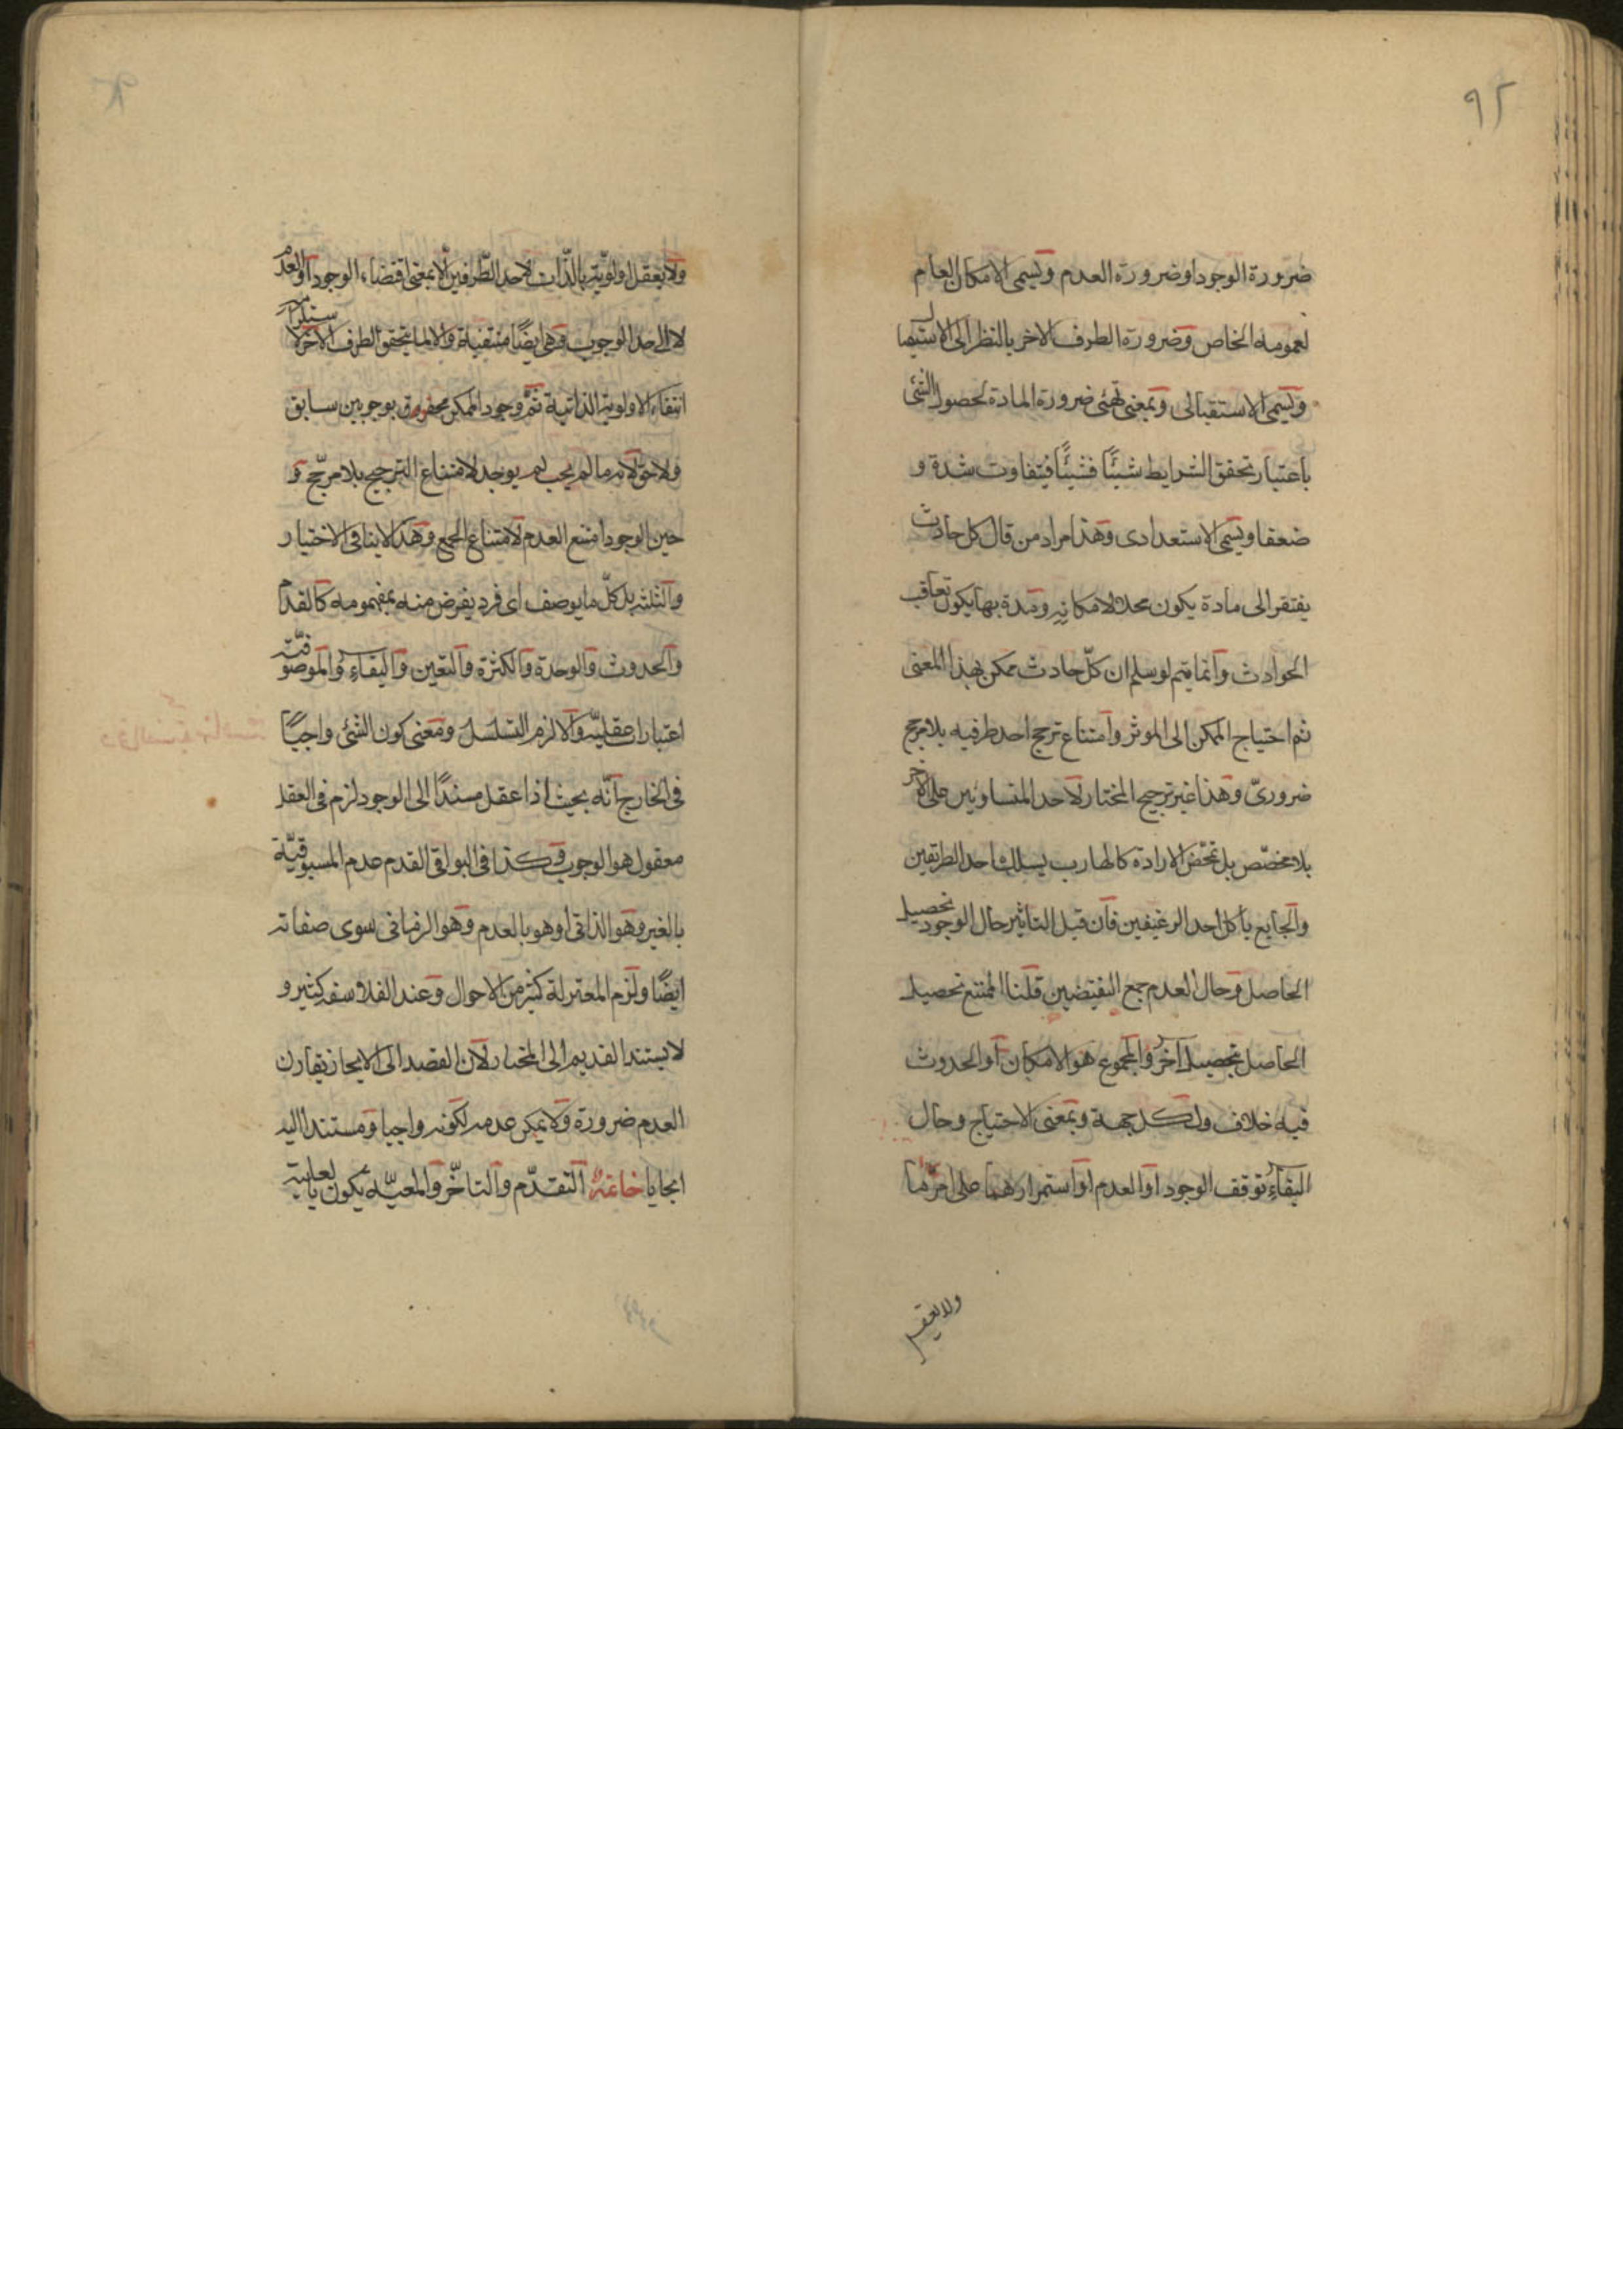 ٩٢
ضرورة الوجود او ضرورة العدم ويسمى الامكان العام
لعمومه الخاص وضرورة الطرف الاخر بالنظر الى الاستقبال
ويسمى الاستقبالى وبمعنى تهيئ ضرورة المادة لحصول الشئ
باعتبار تحقق الشرايط شيئًا فشيئًا فيتفاوت شدة و
ضعفا ويسمى الاستعدادى وهذا مراد من قال كل حادث
يفتقر الى مادة يكون محلا لامكانه ومدة بها يكون تعاقب
الحوادث وانما يتم لو سلم ان كلّ حادث ممكن بهذا المعنى
ثم احتياج الممكن الى الموثر وامتناع ترجح احد طرفيه بلا مرجح
ضرورىّ وهذا غير ترجيح المختار لاحد المتساويين على الاخر
بلا مخصّص بل تمحّض الارادة كالهارب يسلك احد الطريقين
والجايع يأكل احد الرغيفين فان قيل التاثير حال الوجود تحصيل
الحاصل وحال العدم جمع النقيضين قلنا الممتنع تحصيل
الحاصل بتحصيل آخر والمحوج هو الامكان او الحدوث
فيه خلاف ولكل جهة وبمعنى الاحتياج وحال
البقاء توقف الوجود او العدم او استمرارهما على امر ما
ولا يعقل
ولا يعقل اولوية بالذّات لاحد الطّرفين الا بمعنى اقتضاء الوجود او العدم
لا الى حد الوجوب وهى ايضًا منتفية والا لما يتحقق الطرف الاخر لاستلزامه
انتفاء الاولوية الذاتية ثمّ وجود الممكن محفوف بوجوبين سابق
ولاحق لانه ما لم يجب لم يوجد لامتناع الترجح بلا مرجّح و
حين الوجود امتنع العدم لامتناع الجمع وهذا لا ينافى الاختيار
والثلثة بل كلّ ما يوصف اى فرد يفرض منه بمفهومه كالقدم
والحدوث والوحدة والكثرة والتعين والبقاء والموصوفيّة
اعتبارات عقليّة والا لزم التسلسل ومعنى كون الشئ واجبًا
فى الخارج انّه بحيث اذا عقل مسندًا الى الوجود لزم فى العقل
معقول هو الوجوب وكذا فى البواقى القدم عدم المسبوقيّة
بالغير وهو الذاتى او هو بالعدم وهو الزمانى سوى صفاته
ايضًا ولزم المعتزلة كثير من الاحوال وعند الفلاسفه كثير و
لا يستند القديم الى المختار لان القصد الى الايجاد يقارن
العدم ضرورة ولا يمكن عدمه لكونه واجبا ومستندا اليه
ايجابا خاتمة التقدّم والتاخّر والمعيّه يكون بالعلية